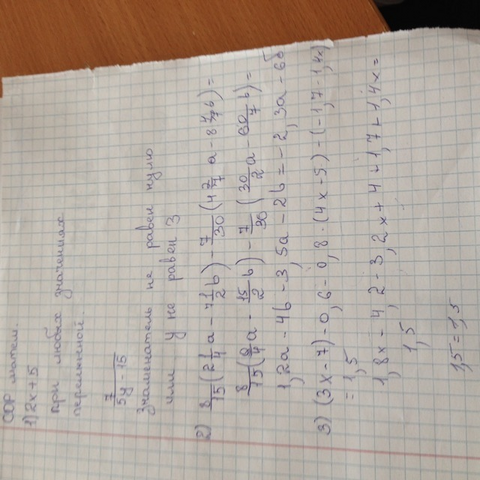 СОР матем.
1) 2x+5
при любых значениях
переменной.
7/(5y-15)
Знаменатель не равен нулю
или y не равен 3
2) 8/15(2 1/4 a - 7 1/2 b) - 7/30(4 2/7 a - 8 4/7 b) =
8/15(9/4 a - 15/2 b) - 7/30(30/7 a - 60/7 b) =
1,2a - 4b - 3,5a - 2b = -2,3a - 6b
3) (3x-7)-0,6-0,8·(4x-5)-(-1,7-1,4x)
= 1,5
1,8x-4,2-3,2x+4+1,7+1,4x=
1,5
1,5=1,5